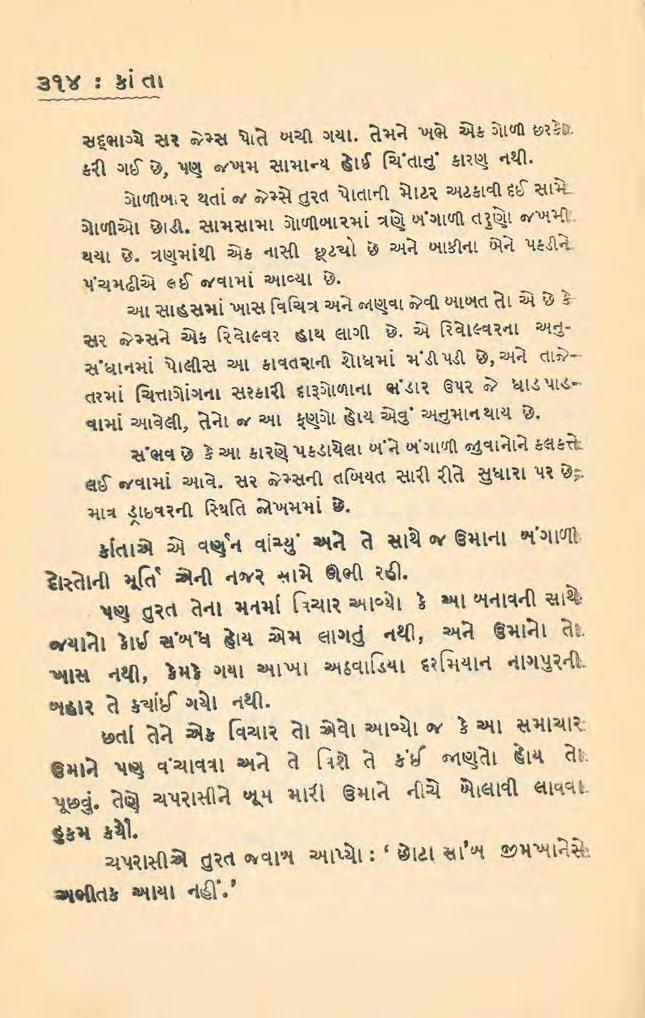 ૩૧૪ : કાંતા
સદ્‌ભાગ્યે સર જેમ્સ પોતે બચી ગયા. તેમને ખભે એક ગોળી છરકો
કરી ગઈ છે, પણ જખમ સામાન્ય હોઈ ચિંતાનું કારણ નથી.
ગોળીબાર થતાં જ જેમ્સે તુરત પોતાની મોટર અટકાવી દઈ સામે
ગોળીઓ છોડી. સામસામા ગોળીબારમાં ત્રણે બંગાળી તરુણો જખમી
થયા છે. ત્રણમાંથી એક નાસી છૂટ્યો છે અને બાકીના બેને પકડીને
પંચમઢીએ લઈ જવામાં આવ્યા છે.
આ સાહસમાં ખાસ વિચિત્ર અને જાણવા જેવી બાબત તો એ છે કે
સર જેમ્સને એક રિવોલ્વર હાથ લાગી છે. એ રિવોલ્વરના અનુ-
સંધાનમાં પોલીસ આ કાવતરાની શોધમાં મંડી પડી છે, અને તાજે-
તરમાં ચિત્તાગોંગના સરકારી દારૂગોળાના ભંડાર ઉપર જે ધાડ પાડ-
વામાં આવેલી, તેનો જ આ ફણગો હોય એવું અનુમાન થાય છે.
સંભવ છે કે આ કારણે પકડાયેલા બંને બંગાળી જુવાનોને કલકત્તે
લઈ જવામાં આવે. સર જેમ્સની તબિયત સારી રીતે સુધારા પર છે;
માત્ર ડ્રાઇવરની સ્થિતિ જોખમમાં છે.
કાંતાએ એ વર્ણન વાંચ્યું અને તે સાથે જ ઉમાના બંગાળી
દોસ્તોની મૂર્તિ એની નજર સામે ઊભી રહી.
પણ તુરત તેના મનમાં વિચાર આવ્યો કે આ બનાવની સાથે
જયાનો કોઈ સંબંધ હોય એમ લાગતું નથી, અને ઉમાનો તો
ખાસ નથી, કેમકે ગયા આખા અઠવાડિયા દરમિયાન નાગપુરની
બહાર તે ક્યાંઈ ગયો નથી.
છતાં તેને એક વિચાર તો એવો આવ્યો જ કે આ સમાચાર
ઉમાને પણ વંચાવવા અને તે વિશે તે કંઈ જાણતો હોય તો
પૂછવું. તેણે ચપરાસીને બૂમ મારી ઉમાને નીચે બોલાવી લાવવા
હુકમ કર્યો.
ચપરાસીએ તુરત જવાબ આપ્યો : ‘ છોટા સા'બ જીમખાનેસે
અભીતક આયા નહીં.’